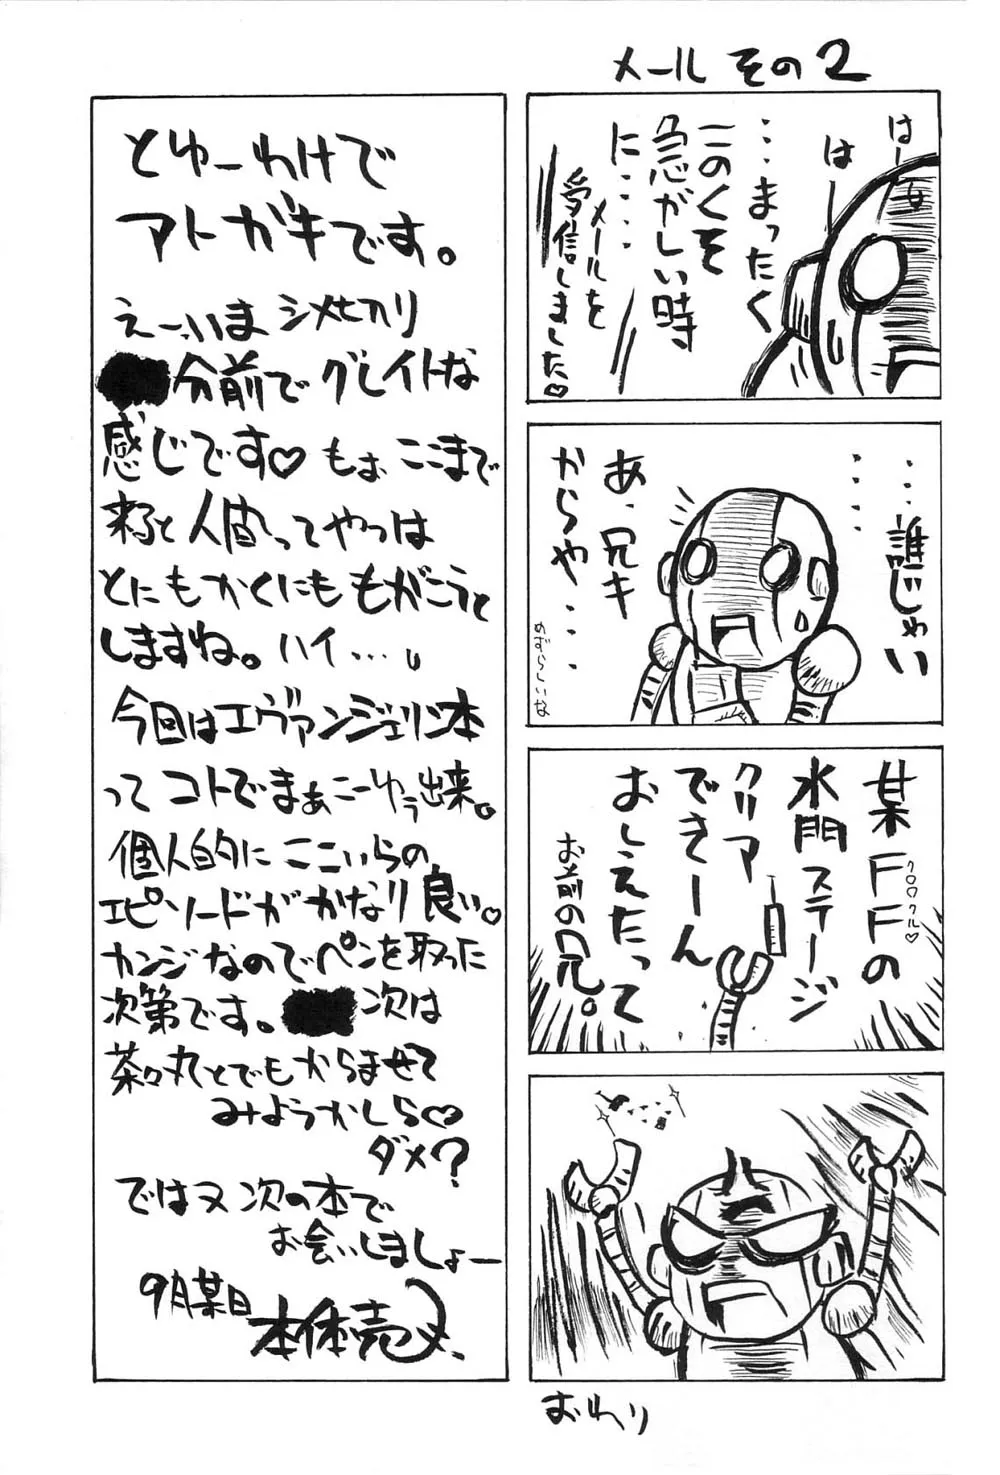 メール その2
はー
はー
…まったく
このくそ
急がしい時
に‥‥
メールを
受信しました♡
‥‥
‥‥誰じゃい
あ、兄キ
からや‥‥
めずらしいな
某FFの
クロワクル♡
水門ステージ
クリア
できーん
おしえたって
お前の兄。
おわり
とゆーわけで
アトガキです。
えーっいま シメセツリ
分前で グレイトな
感じです♡ もぉ ここまで
来ると 人間ってやつは
とにもかくにも もがこうと
しますね。ハイ…。
今回はエヴァンジェリン本
って コトでまぁこーゆう出来。
個人的に ここいらの
エピソードが かなり 良い。
カンジなので ペンを取った
次第です。 次は
茶々丸とでもからませて
みようかしら♡
ダメ?
ではヌ 次の本で
お会いしましょー
9月某日
本体売